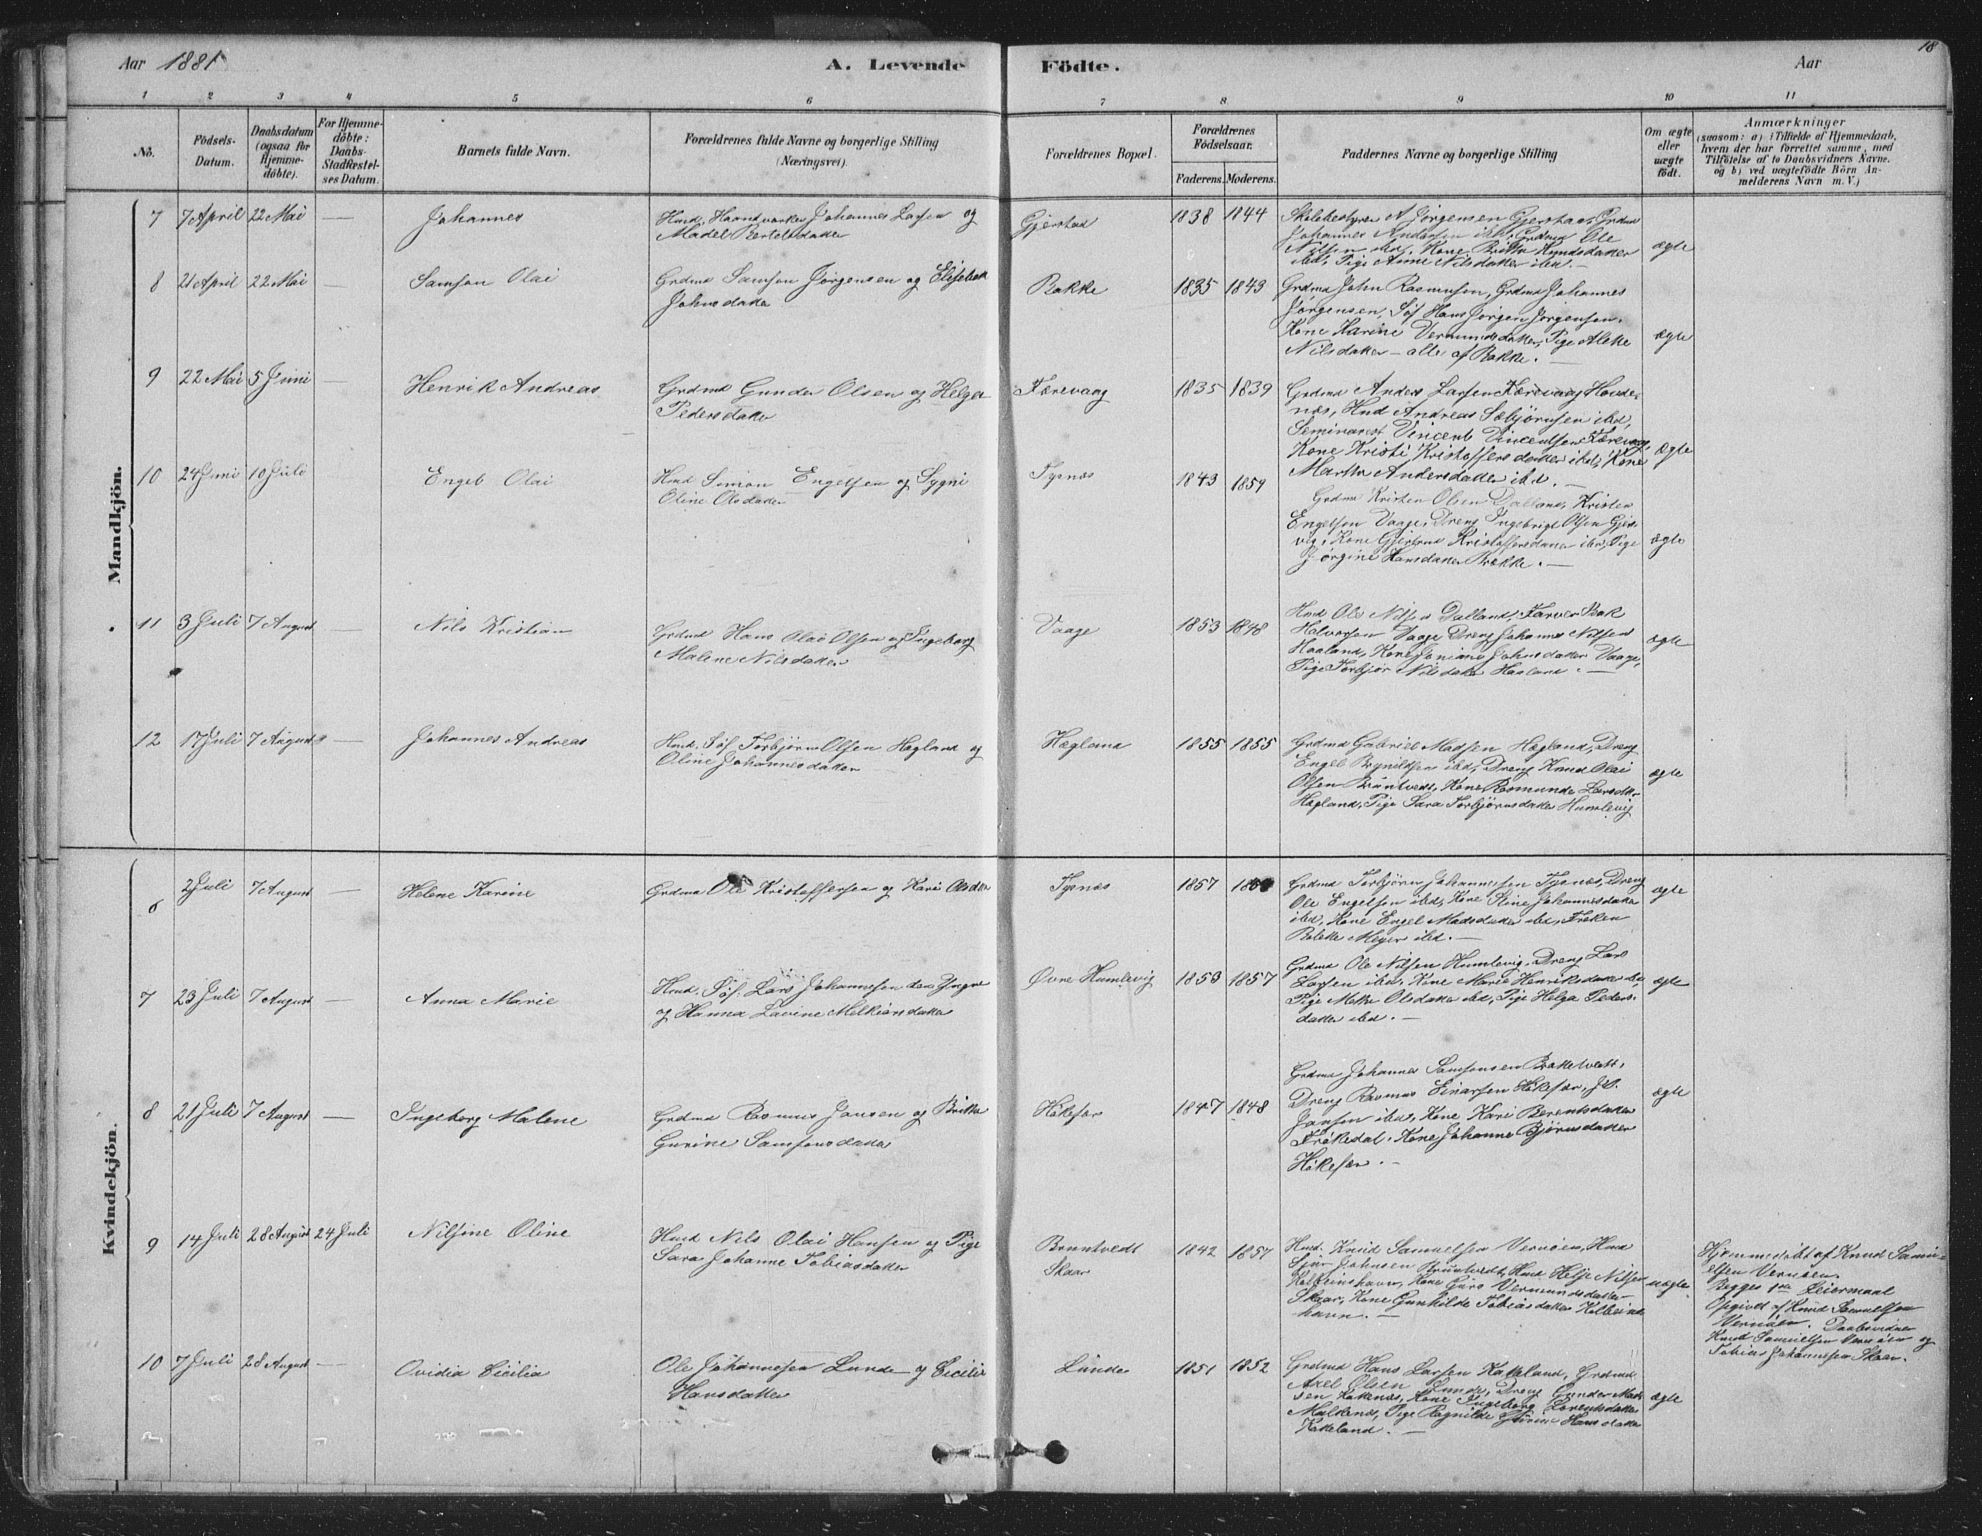 18
Aar 1881
A. Levende
Födte.
Aar
1 2 3 4 5 6 7 8 9 10 11
No.
Födsels-
Datum.
Daabsdatum
(ogsaa for
Hjemme-
döbte).
For Hjemme-
döbte:
Daabs-
Stadfæstel-
ses Datum.
Barnets fulde Navn.
Forældrenes fulde Navne og borgerlige Stilling
(Næringsvei).
Forældrenes Bopæl.
Forældrenes
Födselsaar.
Faderens. Moderens.
Faddernes Navne og borgerlige Stilling
Om ægte
eller
uægte
födt.
Anmærkninger
(saasom: a) i Tilfælde af Hjemmedaab,
hvem der har forrettet samme, med
Tilföielse af to Daabsvidners Navne.
og b) ved uægtefödte Börn An-
melderens Navn m. V.)
Mandkjön.
7 7 April 22 Mai — Johannes
Johannes Larsen og
Madel Bertelsdatter
Gjerstad 1838 1844
Jørgensen Gjerstad, Grdmd
Johannes Andersen ibd, Grdmd Ole
Nilsen ibd, Kone Britha Knudsdatter
ibd, Pige Anne Nilsdatter ibd. —
ægte
8 21 April 22 Mai — Samson Olai
Grdmd Samson Jørgensen og Elisebeth
Johnsdatter
Bakke 1835 1843
Grdmd John Rasmussen, Grdmd Johannes
Jørgensen, Søf Hans Jørgen Jørgensen,
Kone Karine Vermundsdatter, Pige Aleke
Nilsdatter — alle af Bakke.
ægte
9 22 Mai 5 Juni — Henrik Andreas
Grdmd Gunder Olsen og Helga
Pedersdatter
Færevaag 1835 1839
Grdmd Anders Larsen Færevaag Hovde-
næs, Hmd Andreas Sebjørnsen ibd,
Seminarist Vincent Vincentsen Færevaag,
Kone Kristi Kristoffersdatter ibd, Kone
Martha Andersdatter ibd. —
ægte
10 24 Juni 10 Juli Engel Olai
Hmd Simon Engelsen og Sygni
Oline Olsdatter
Tysnæs 1843 1859
Grdmd Kristen Olsen Dalland, Kristen
Engelsen Vaage, Dreng Ingebrigt Olsen Gjers-
vig, Kone Gjertrud Kristoffersdatter ibd, Pige
Jørgine Hansdatter Bakke. —
ægte
11 3 Juli 7 August — Nils Kristian
Grdmd Hans Olai Olsen og Ingeborg
Malene Nilsdatter
Vaage 1853 1848
Hmd Ole Nilsen Dalland, Farver
Halvorsen Vaage, Dreng Johannes Nilsen
Haaland, Kone Johnsdatter Vaage,
Pige Torbjør Nilsdatter Haaland. —
ægte
12 17 Juli 7 August — Johannes Andreas
Hmd, Søf Torbjørn Olsen Hægland og
Oline Johannesdatter
Hægland 1855 1855
Grdmd Gabriel Madsen Hægland, Dreng
Engel Brynildsen ibd, Dreng Knud Olai
Olsen Brüntvedt, Kone Rasmunde Larsdtr
Hægland, Pige Sara Torbjørnsdatter Humlevig
ægte
Kvindekjön.
6 2 Juli 7 August — Helene Karine
Grdmd Ole Kristoffersen og Kari Olsdtr
Tysnæs 1857
Grdmd Torbjørn Johannesen Tysnæs, Dreng
Ole Engelsen ibd, Kone Stine Johannesdatter
ibd, Kone Engel Madsdatter ibd, Frøken
Bolette Meyer ibd. —
ægte
7 23 Juli 7 August — Anna Marie
Hmd, Søf. Lars Johannesen den Yngre
og Hanna Lavine Melkiorsdatter
Øvre Humlevig 1853 1857
Grdmd Ole Nilsen Humlevig, Dreng Lars
Larsen ibd, Kone Marie Henriksdatter ibd,
Pige Mette Olsdatter ibd, Pige Helga Peders-
datter ibd. —
ægte
8 21 Juli 7 August — Ingeborg Malene
Grdmd Rasmus Jansen og Britha
Gurine Samsonsdatter
Høkesær 1847 1848
Grdmd Johannes Samsonsen Brakelvedt,
Dreng Rasmus Einarsen Høkesær,
Jansen ibd, Kone Kari Berentsdatter
Frøkedal, Kone Johanne Bjørnsdatter
Høkesær. —
ægte
9 14 Juli 28 August 24 Juli Nilsine Oline
Hmd Nels Olai Hansen og Pige
Sara Johanne Tobiasdatter
Brüntvedt
Skaar
1842 1857
Hmd. Knud Samuelsen Vernøen, Hmd
Sjur Johnsen Brüntvedt, Hmd Helje Nilsen
Kolbeinshavn, Kone Guro Vermundsdatter
Skaar, Kone Gunhilde Tobiasdatter Kolbeins-
havn. —
uægte
Hjemmedøbt af Knud Samu-
elsen Vernøen.
Begges 1ste Leiermaal
Opgivet af Knud Samuelsen
Vernøen. Daabsvidner
Knud Samuelsen Vernøen og
Tobias Johannesen Skaar.
10 7 Juli 28 August — Ovidia Cicilia
Ole Johannesen Lunde og Cicilie
Hansdatter
Lunde 1851 1852
Grdmd Hans Larsen Kakeland, Grdmd
Axel Olsen Lunde, Dreng Gunder Mad-
sen Høkenæs, Kone Ingeborg Lorentsdatter
Pige Ragnilde Hansdatter
Kakeland. —
ægte